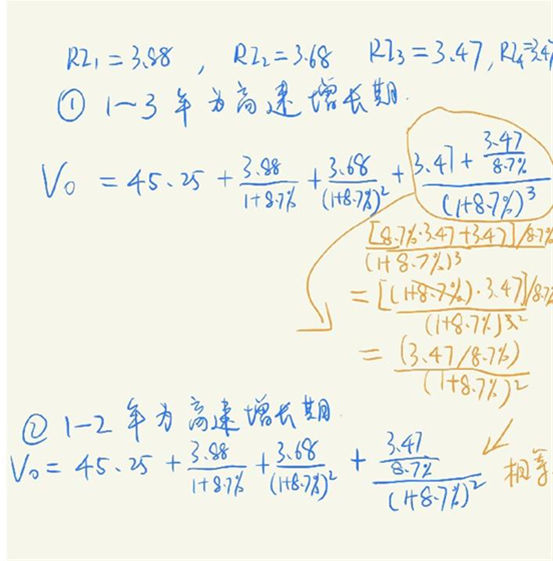 RI₁ = 3.88 , RI₂ = 3.68 RI₃ = 3.47, RI₄ = 3.47
① 1~3 年为高速增长期.
V₀ = 45.25 + 3.88/(1+8.7%) + 3.68/(1+8.7%)² + (3.47 + 3.47/8.7%)/(1+8.7%)³
[8.7%·3.47+3.47]/8.7%/(1+8.7%)³
= [(1+8.7%)·3.47]/8.7%/(1+8.7%)³²
= (3.47/8.7%)/(1+8.7%)²
② 1-2 年为高速增长期.
V₀ = 45.25 + 3.88/(1+8.7%) + 3.68/(1+8.7%)² + (3.47/8.7%)/(1+8.7%)²
相等